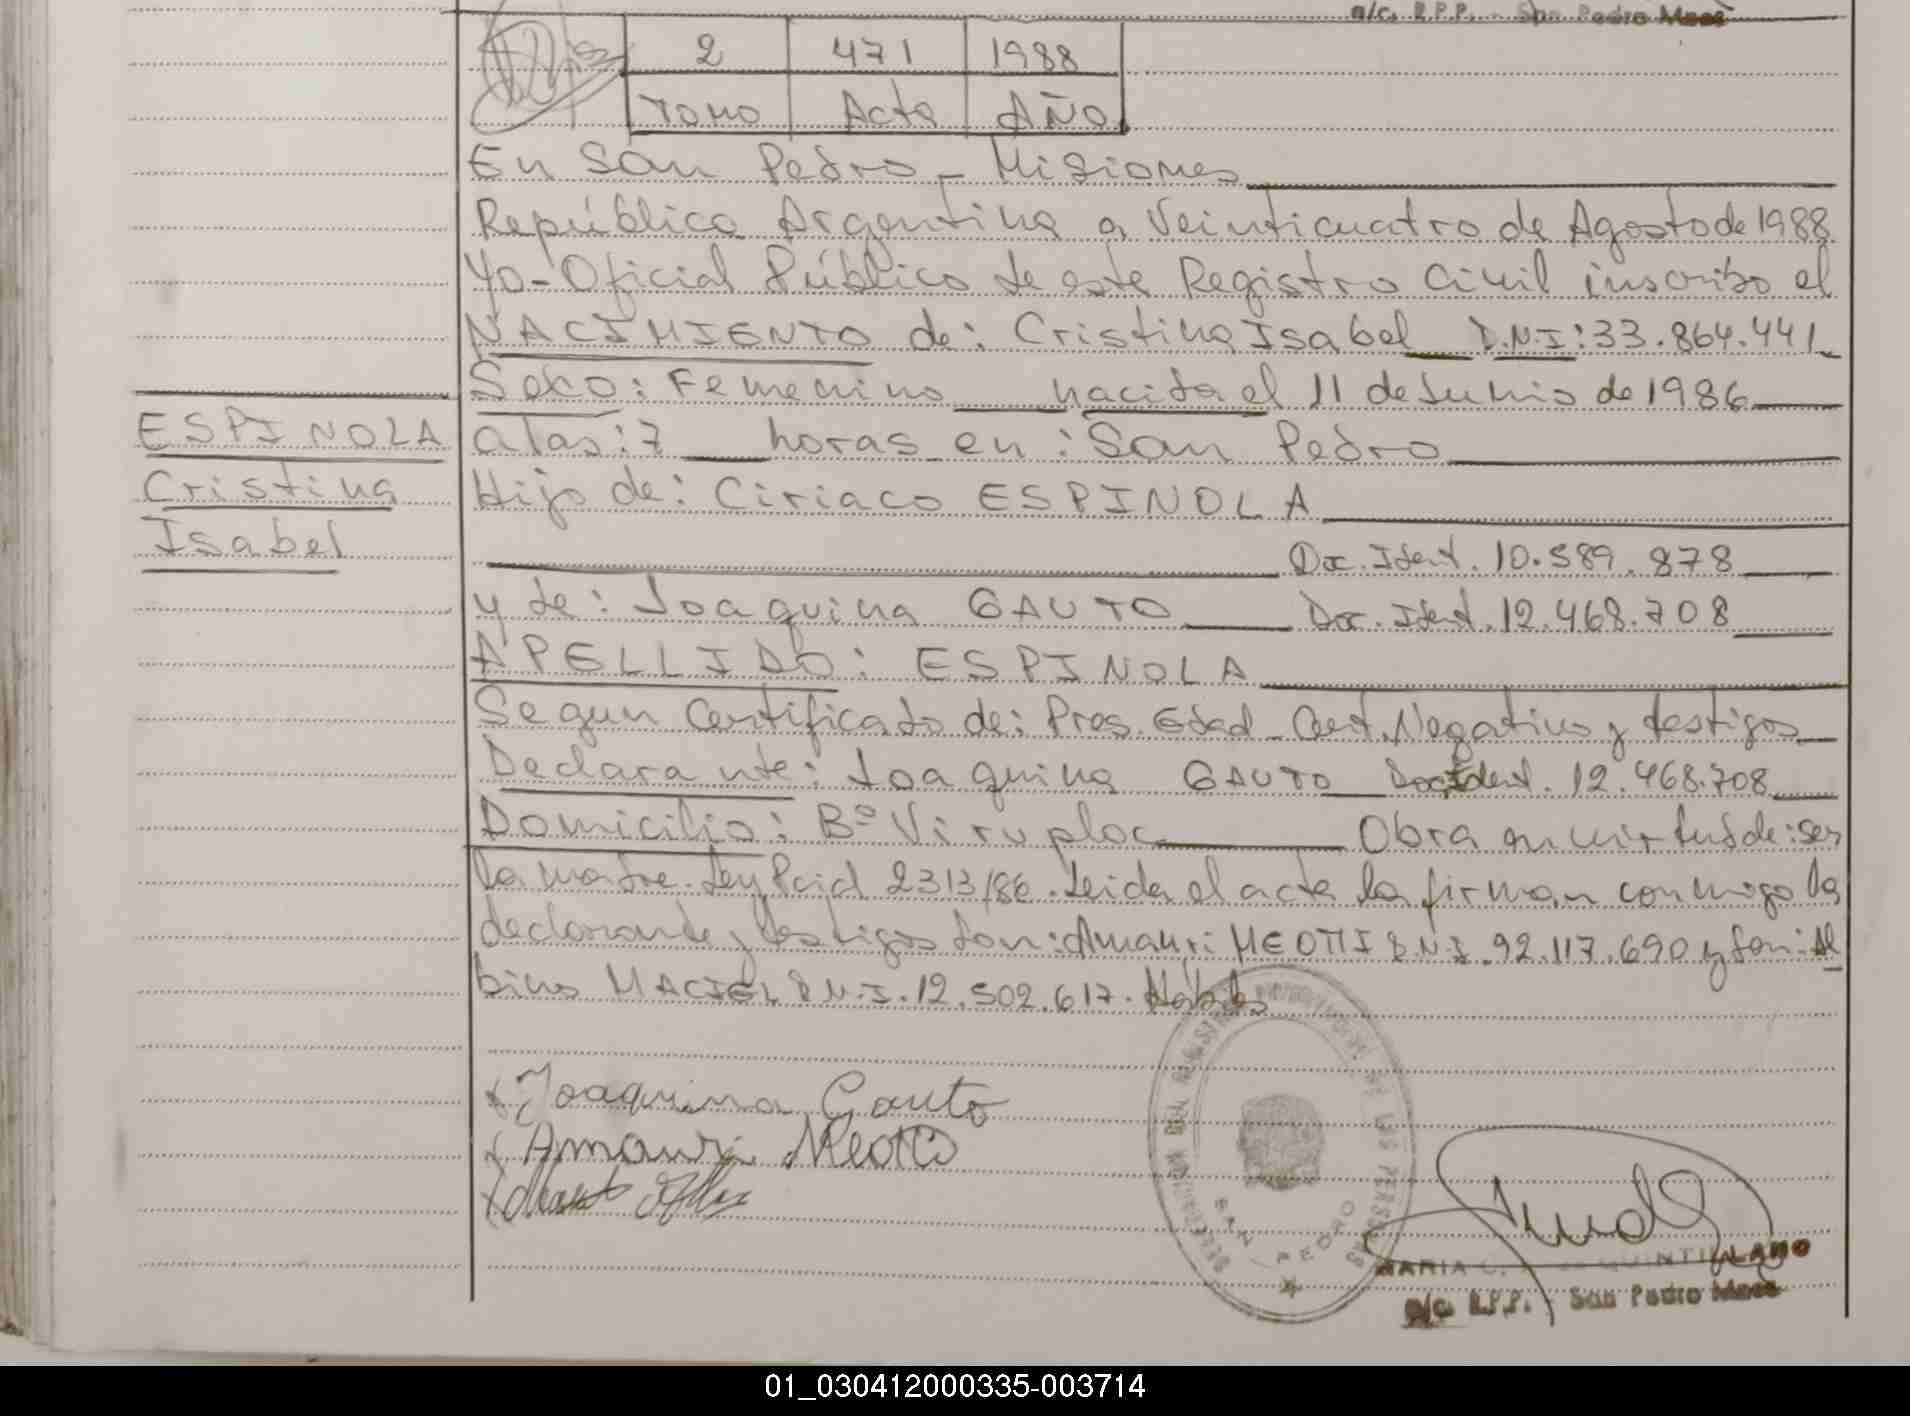 a/c. R.P.P. - San Pedro Mnes
2 471 1988
Tomo Acta AÑO.
En San Pedro - Misiones
República Argentina a Veinticuatro de Agosto de 1988
Yo-Oficial Público de este Registro Civil inscribo el
NACIMIENTO de: Cristina Isabel D.N.I: 33.864.441
Sexo: Femenino nacida el 11 de Junio de 1986
ESPINOLA
Cristina
Isabel
a las: 7 horas en: San Pedro
Hijo de: Ciriaco ESPINOLA
Doc. Ident. 10.589.878
y de: Joaquina GAUTO Doc. Ident. 12.468.708
APELLIDO: ESPINOLA
Segun Certificado de: Pres. Edad - Cert. Negativo y testigos
Declarante: Joaquina GAUTO Doc Ident. 12.468.708
Domicilio: Bº Viru ploc Obra en virtud de: ser
la madre. Ley Pcial 2313/86. Leida el acta la firman conmigo la
declarante y testigos Don: Amauri MEOTTI D.N.I. 92.117.690 y Don: Al
bino MACIEL D.N.I. 12.502.617. Hábiles
Joaquina Gauto
Amauri Meotti
SAN PEDRO
MARIA C. QUINTILLANO
a/c. R.P.P. - San Pedro Mnes
01_030412000335-003714